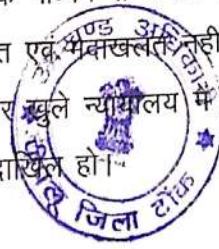 त एवं मदाखलत नहीं
र खुले न्यायालय में
दाखिल हो।
खण्ड अधिकारी
जिला टोंक